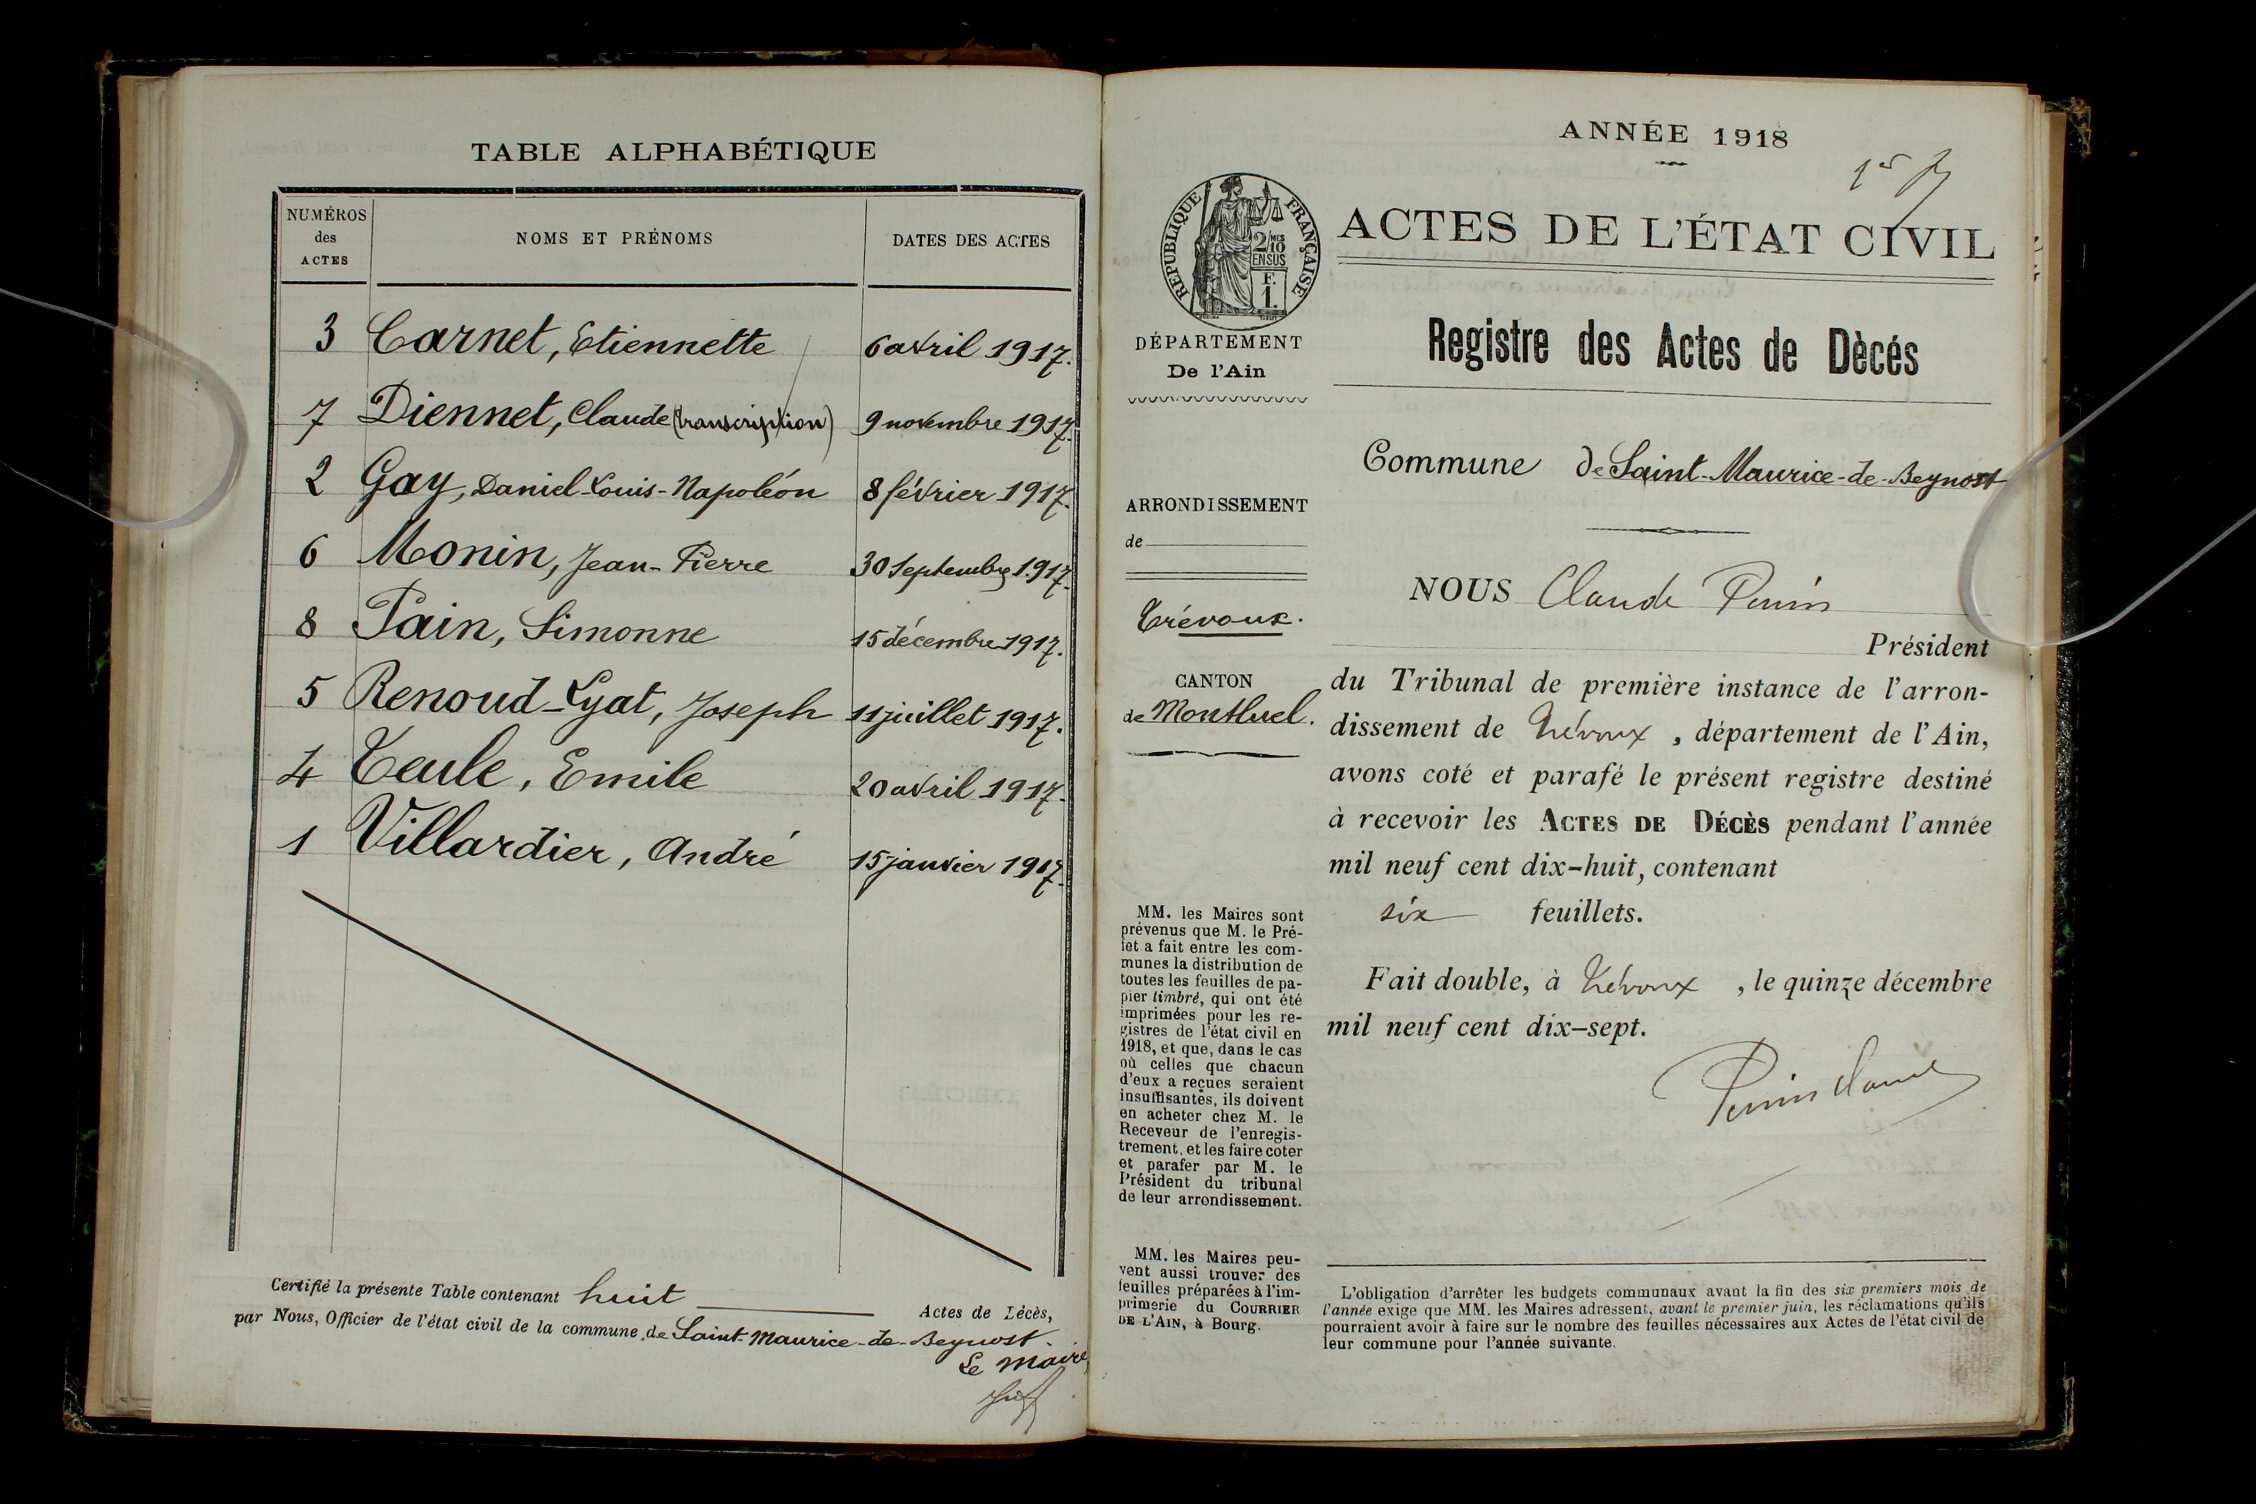 TABLE ALPHABÉTIQUE
NUMÉROS
des
ACTES
NOMS ET PRÉNOMS
DATES DES ACTES
3 Carnet, Etiennette 6 avril 1917.
7 Diennet, Claude (transcription) 9 novembre 1917.
2 Gay, Daniel-Louis-Napoléon 8 février 1917.
6 Monin, Jean-Pierre 30 Septembre 1917.
8 Pain, Simonne 15 décembre 1917.
5 Renoud-Lyat, Joseph 11 juillet 1917.
4 Teule, Emile 20 avril 1917.
1 Villardier, André 15 janvier 1917.
Certifié la présente Table contenant huit Actes de Décès,
par Nous, Officier de l'état civil de la commune de Saint-Maurice-de-Beynost.
Le Maire,
ANNÉE 1918
ACTES DE L'ÉTAT CIVIL
RÉPUBLIQUE FRANÇAISE
2/10 MES
EN SUS
F.
1.
DÉPARTEMENT
De l'Ain
ARRONDISSEMENT
de
Trévoux.
CANTON
de Montluel.
MM. les Maires sont
prévenus que M. le Pré-
fet a fait entre les com-
munes la distribution de
toutes les feuilles de pa-
pier timbré, qui ont été
imprimées pour les re-
gistres de l'état civil en
1918, et que, dans le cas
où celles que chacun
d'eux a reçues seraient
insuffisantes, ils doivent
en acheter chez M. le
Receveur de l'enregis-
trement, et les faire coter
et parafer par M. le
Président du tribunal
de leur arrondissement.
MM. les Maires peu-
vent aussi trouver des
feuilles préparées à l'im-
primerie du COURRIER
DE L'AIN, à Bourg.
Registre des Actes de Dècés
Commune de Saint-Maurice-de-Beynost
NOUS Claude Perrin
Président
du Tribunal de première instance de l'arron-
dissement de Trévoux, département de l'Ain,
avons coté et parafé le présent registre destiné
à recevoir les ACTES DE DÉCÈS pendant l'année
mil neuf cent dix-huit, contenant
six feuillets.
Fait double, à Trévoux, le quinze décembre
mil neuf cent dix-sept.
Perrin Claude
L'obligation d'arrêter les budgets communaux avant la fin des six premiers mois de
l'année exige que MM. les Maires adressent, avant le premier juin, les réclamations qu'ils
pourraient avoir à faire sur le nombre des feuilles nécessaires aux Actes de l'état civil de
leur commune pour l'année suivante.